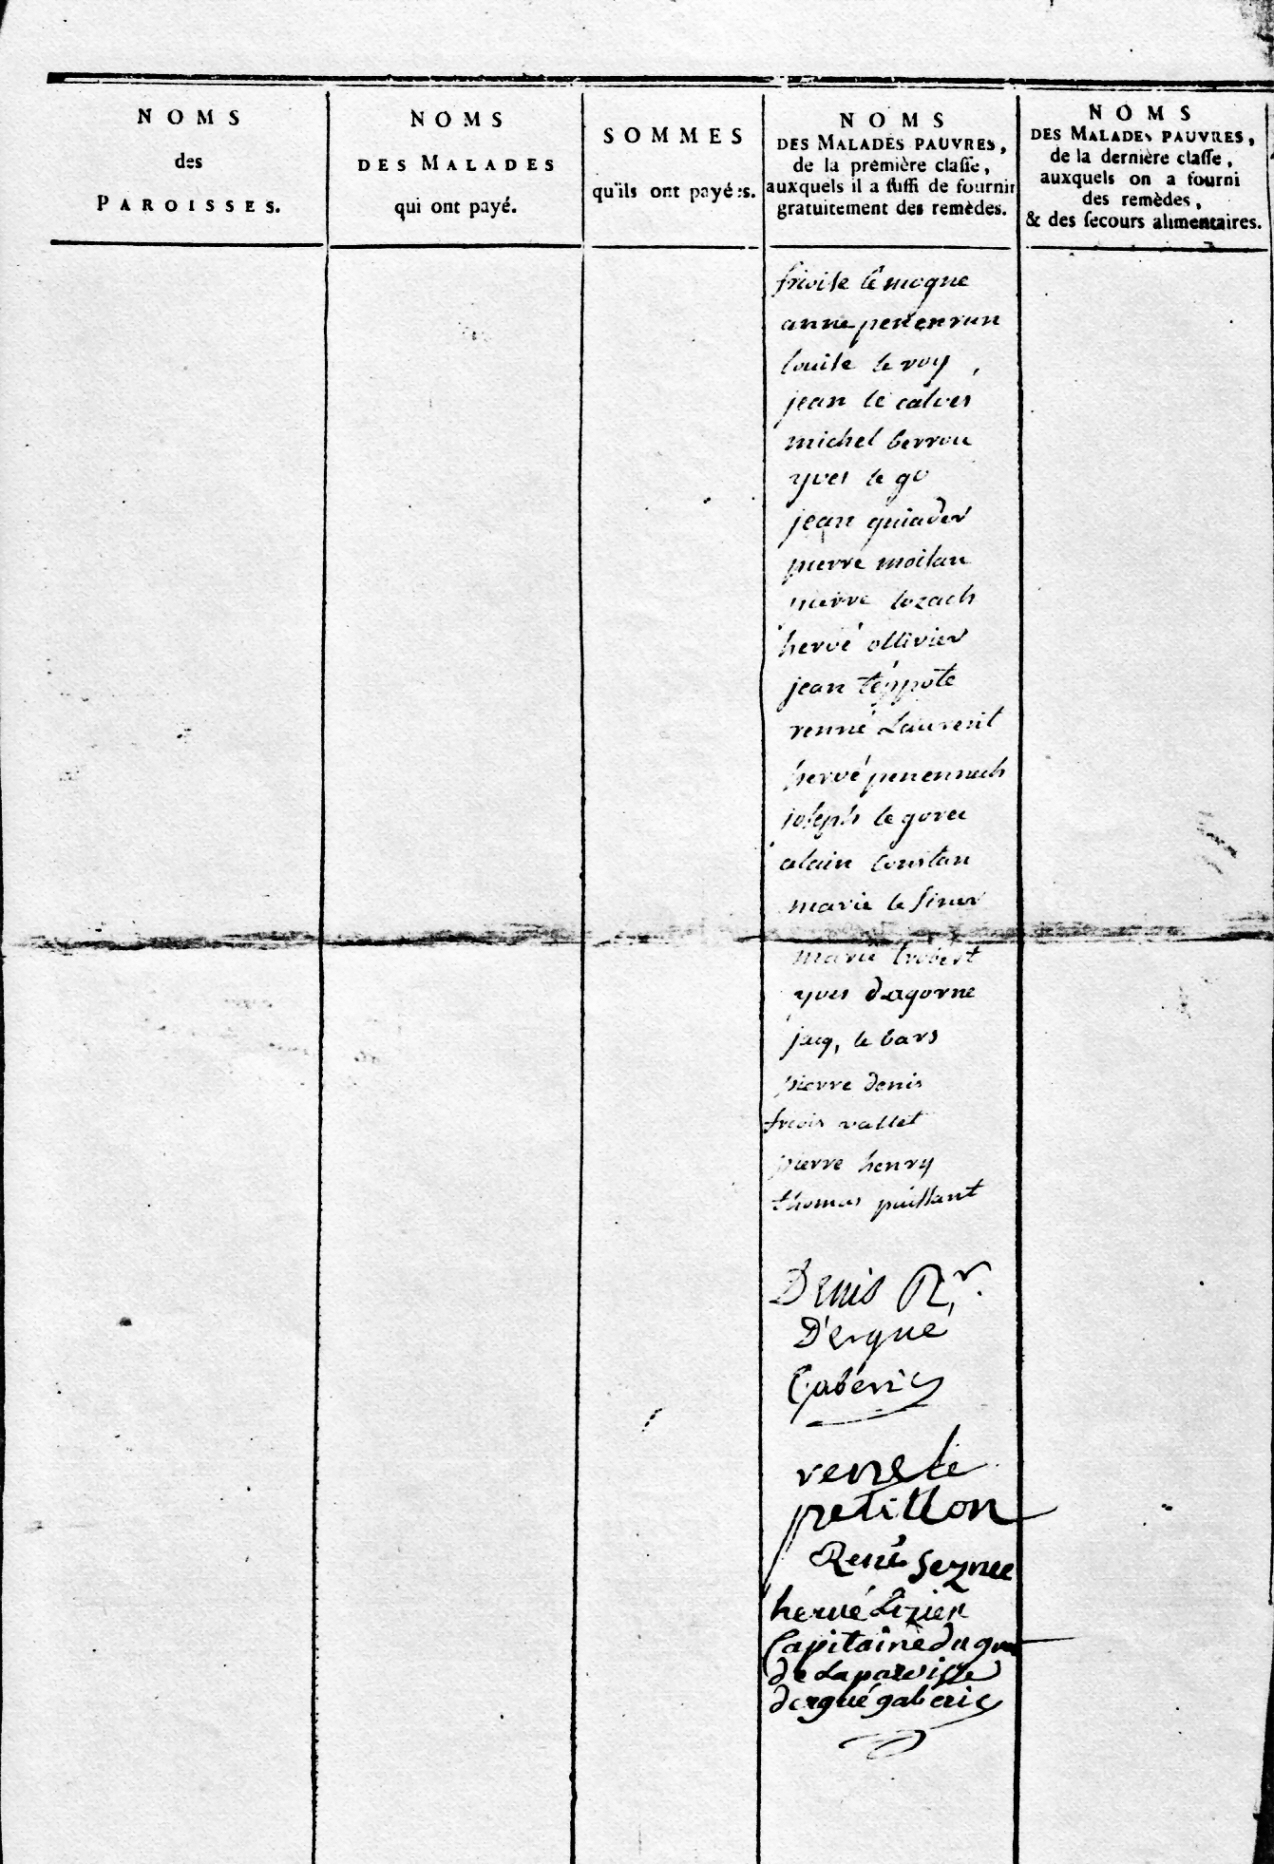 NOMS
des
PAROISSES.
NOMS
DES MALADES
qui ont payé.
SOMMES
qu'ils ont payées.
NOMS
DES MALADES PAUVRES,
de la première classe,
auxquels il a suffi de fournir
gratuitement des remèdes.
NOMS
DES MALADES PAUVRES,
de la dernière classe,
auxquels on a fourni
des remèdes,
& des secours alimentaires.
lé mogne
anne
louise le roy,
jean le calves
michel berrou
yves le go
jean quiader
pierre moisan
pierre lozach
hervé ollivier
jean téppote
renné Laurent
hervé penennech
joseph le goree
alain constan
marie le siner
marie trobert
yves dagorne
jacq, le bars
pierre denis
frcois vallet
pierre henry
thomas puissant
Denis Rr.
D'ergué
Gabéric
rene le
petillon
René Seznec
hervé Lizien
Capitaine du
de La paroisse
dergué gaberic